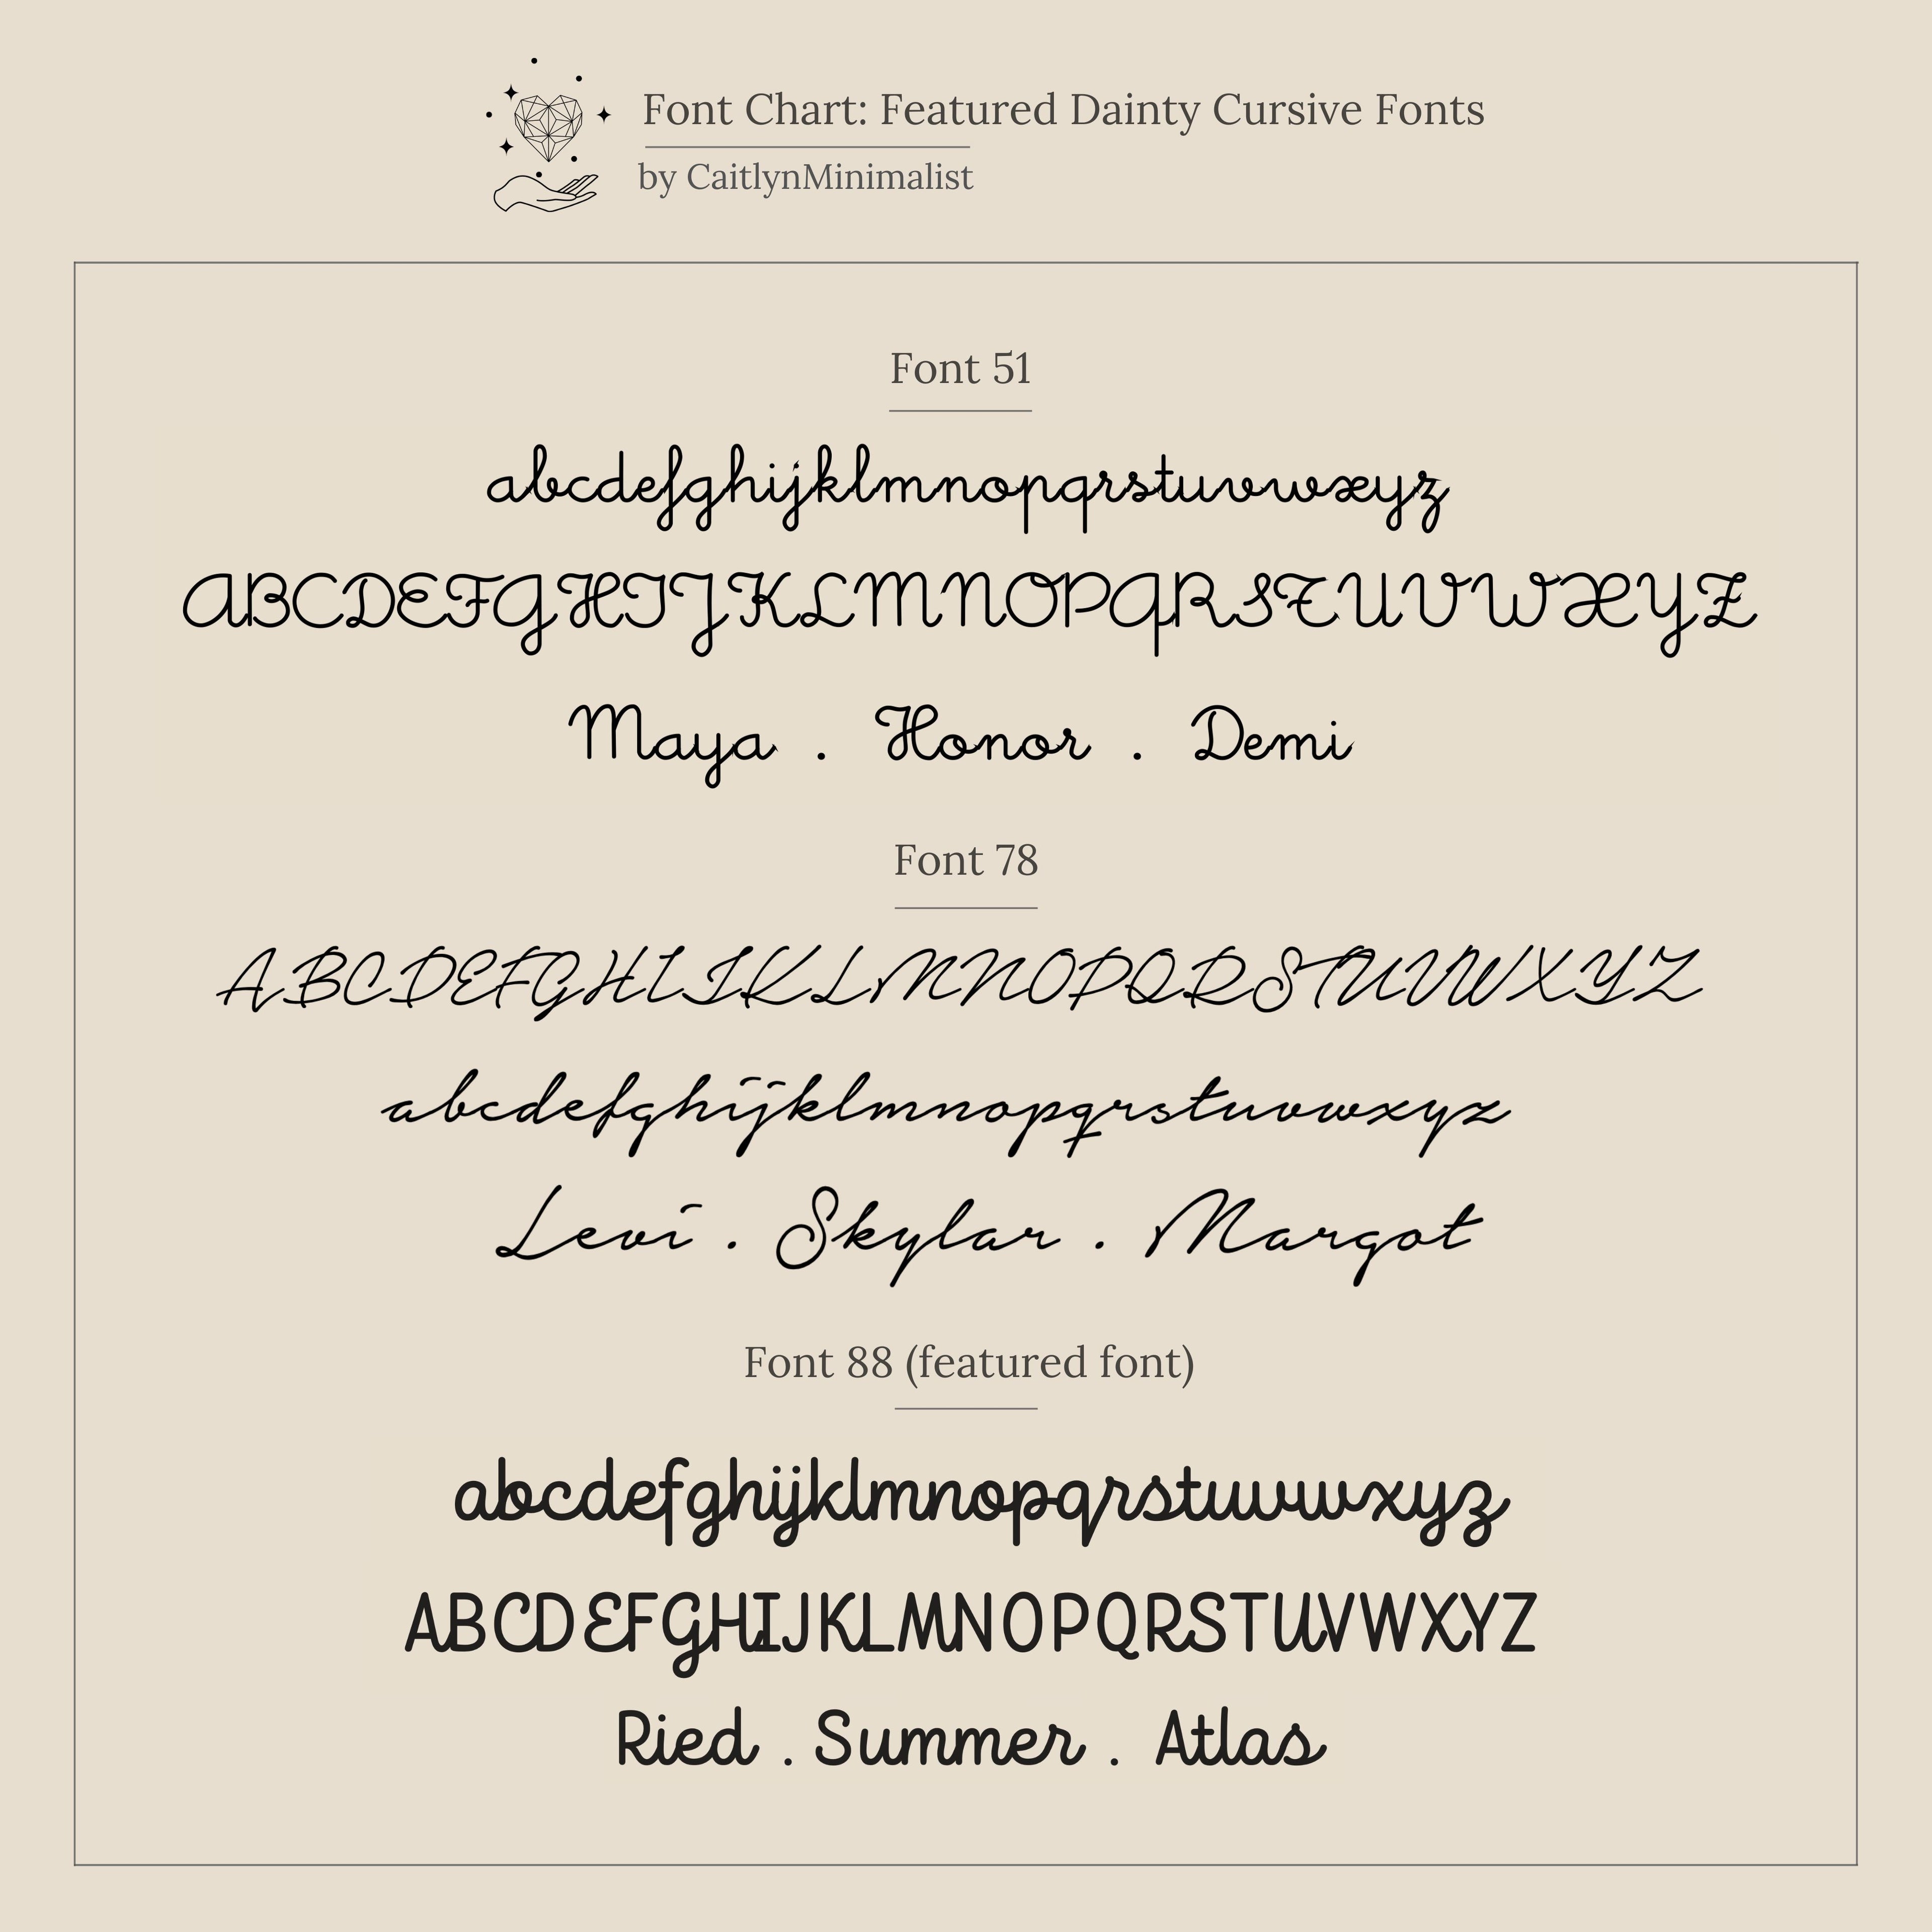 Font Chart: Featured Dainty Cursive Fonts
by CaitlynMinimalist
Font 51
abcdefghijklmnopqrstuvwxyz
ABCDEFGHIJKLMNOPQRSTUVWXYZ
Maya . Honor . Demi
Font 78
ABCDEFGHIJKLMNOPQRSTUVWXYZ
abcdefghijklmnopqrstuvwxyz
Levi . Skylar . Margot
Font 88 (featured font)
abcdefghijklmnopqrstuvwxyz
ABCDEFGHIJKLMNOPQRSTUVWXYZ
Ried . Summer . Atlas